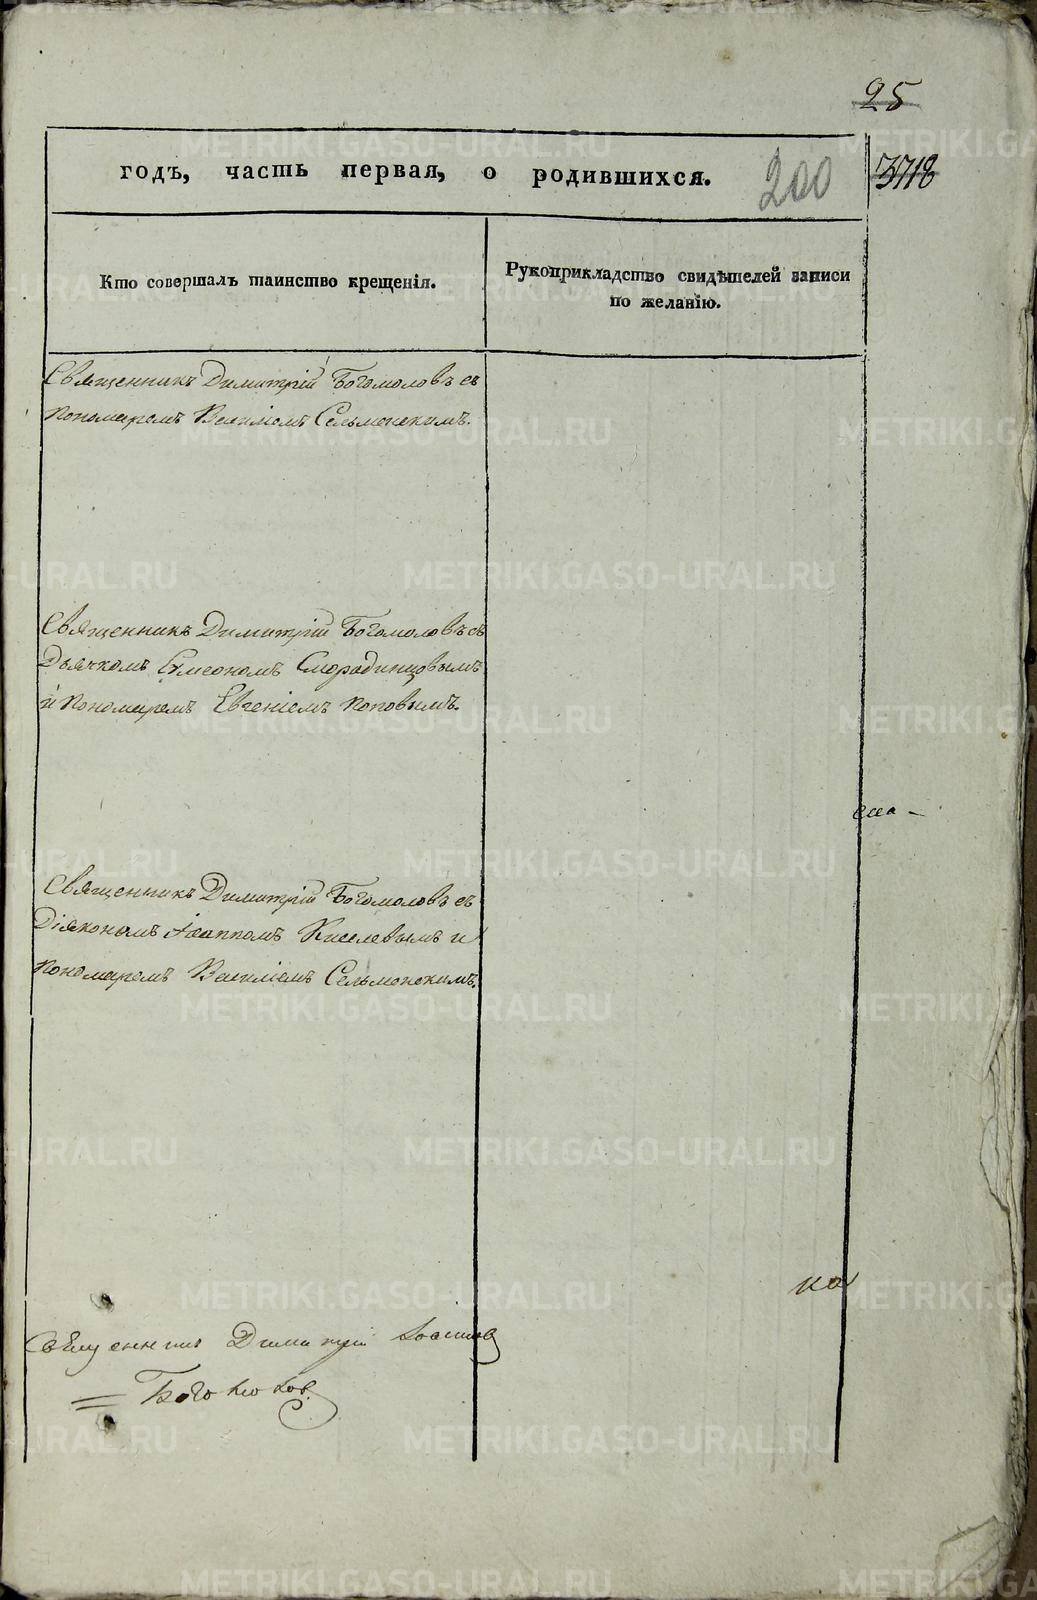 25
годъ, часть первая, о родившихся. 200
Кто совершалъ таинство крещенія.
Рукоприкладство свидѣтелей записи
по желанію.
Священникъ Димитрій Богомоловъ съ
пономаремъ Василіомъ Сельменскимъ.
Священникъ Димитрій Богомоловъ съ
Дьячкомъ Симеономъ Смородинцовымъ
и пономаремъ Евгеніемъ Поповымъ.
Священникъ Димитрій Богомоловъ съ
Діякономъ Іоанномъ Киселевымъ и
пономаремъ Василіемъ Сельменскимъ.
на
Священник Димитрій
Богомолов.
METRIKI.GASO-URAL.RU